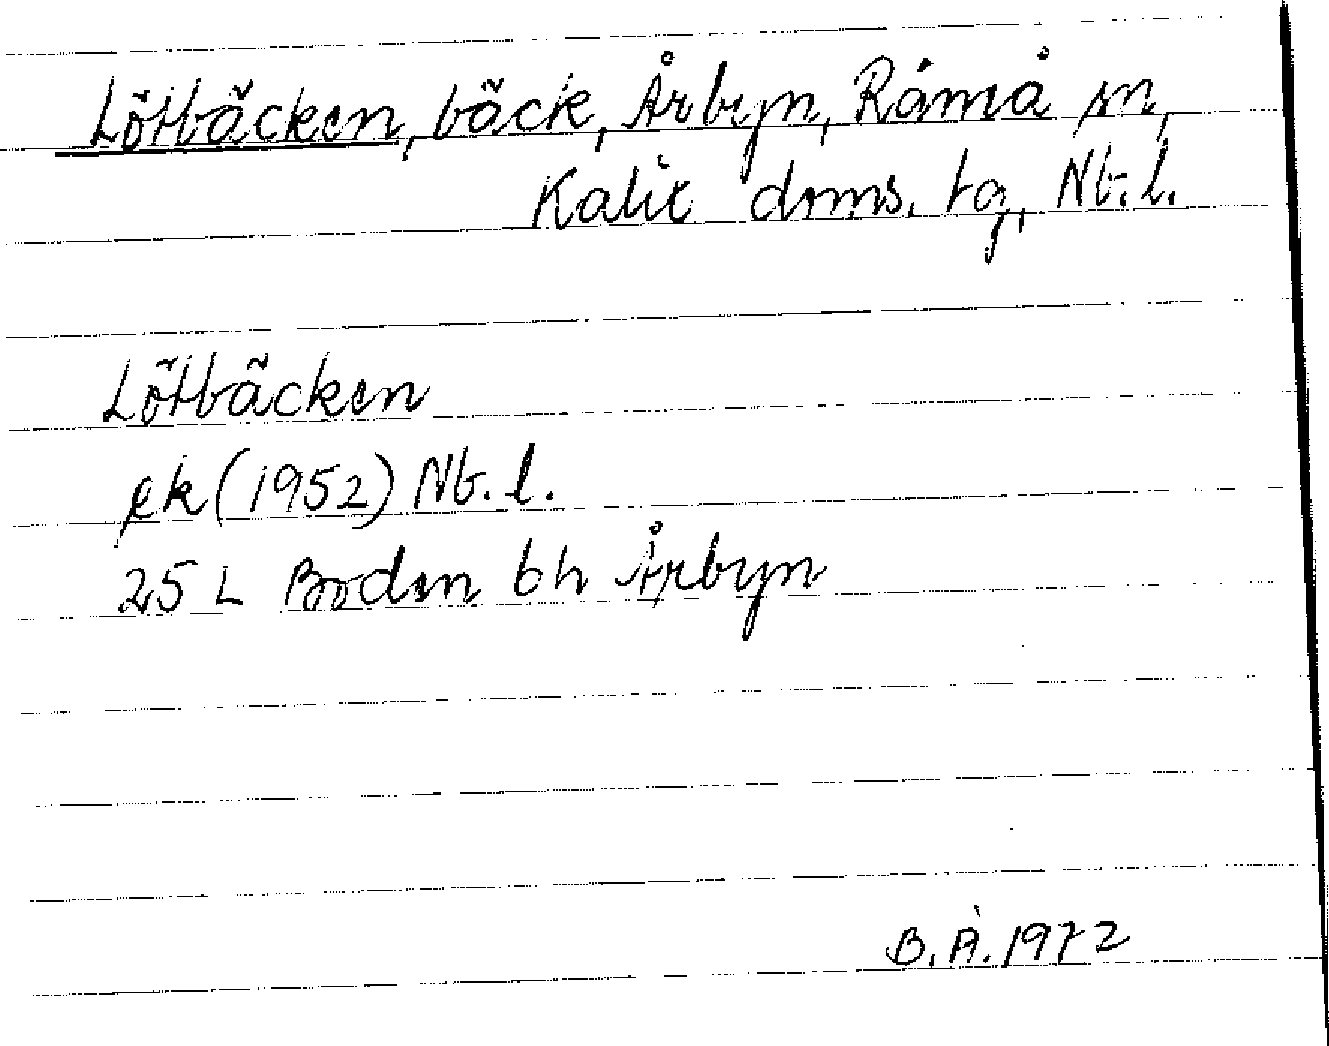 Lötbäcken, bäck, Årbyn, Råneå sn,
Kalix doms. tg, Nb. l.
Lötbäcken
ek (1952) Nb. l.
25 L Boden bh Årbyn
B. Å. 1972